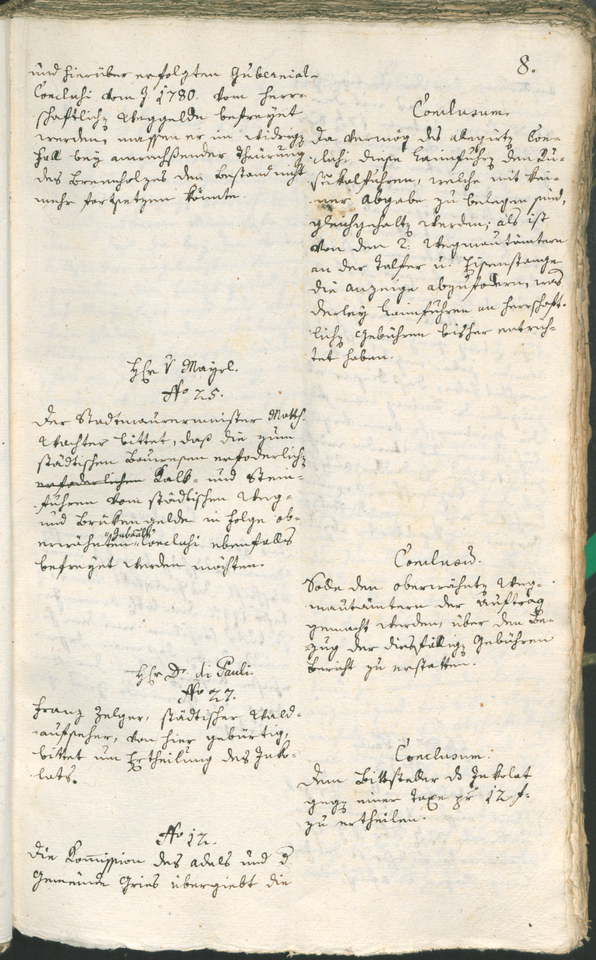 8.
und hierüber erfolgten Gubernial-
Conclusi vom J 1780. vom herr-
schaftlichen Weggelde befreyet
werden, massen er im widrigen
Fall bey anwachsender Theürung
des Brennholzes den Bestand nicht
mehr fortsetzen könnte.
Conclusum.
Da vermög des allegirten Con-
clusi diese Hainfuhren den Ru-
stikalfuhren, welche mit kei-
ner Abgabe zu belegen sind,
gleichgehalten werden; als ist
von den 2. Wegmautämtern
an der Talfer u. Eisenstange
die Anzeige abzufodern, was
derley Hainfuhren an herrschaft-
lichen Gebühren bisher entrich-
tet haben.
Herr v Mayrl.
No 25.
Der Stadtmaurermeister Math.
Wachter bittet, daß die zum
städtischen Bauwesen erforderlichen
erforderlichen Kalk- und Stein-
fuhren vom städtischen Weg-
und Brükengelde in Folge ob-
erwähnten Gubernial Conclusi ebenfalls
befreyet werden möchten.
Conclusum.
Solle den oberwähnten Weg-
mautämtern der Auftrag
gemacht werden, über den Be-
zug der diesfälligen Gebühren
Bericht zu erstatten.
Herr Dr. di Pauli
No 27.
Franz Zelger, städtischer Wald-
aufseher, von hier gebürtig,
bittet um Ertheilung des Inko-
lats.
Conclusum.
Dem Bittsteller das Inkolat
gegen einer Taxe pr 12 f.
zu ertheilen.
No 12.
Die Kommission des Adels und der
Gemeinde Gries übergiebt die